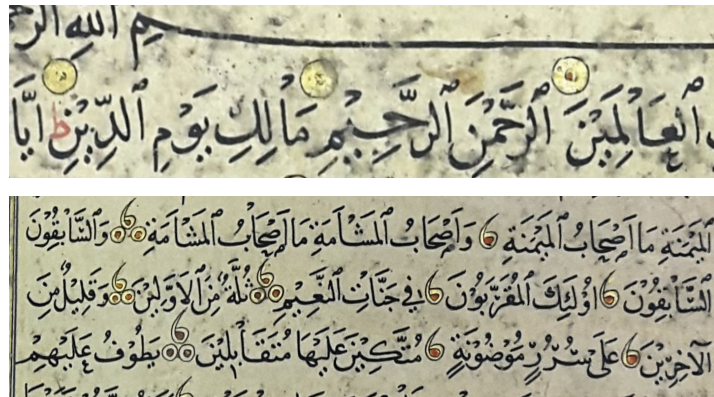 بسم الله الر
العالمين الرحمن الرحيم مالك يوم الدين ط ايا
الميمنة ما اصحاب الميمنة واصحاب المشأمة ما اصحاب المشأمة والسابقون
السابقون اولئك المقربون في جنات النعيم ثلة من الاولين وقليل من
الآخرين على سرر موضونة متكئين عليها متقابلين يطوف عليهم